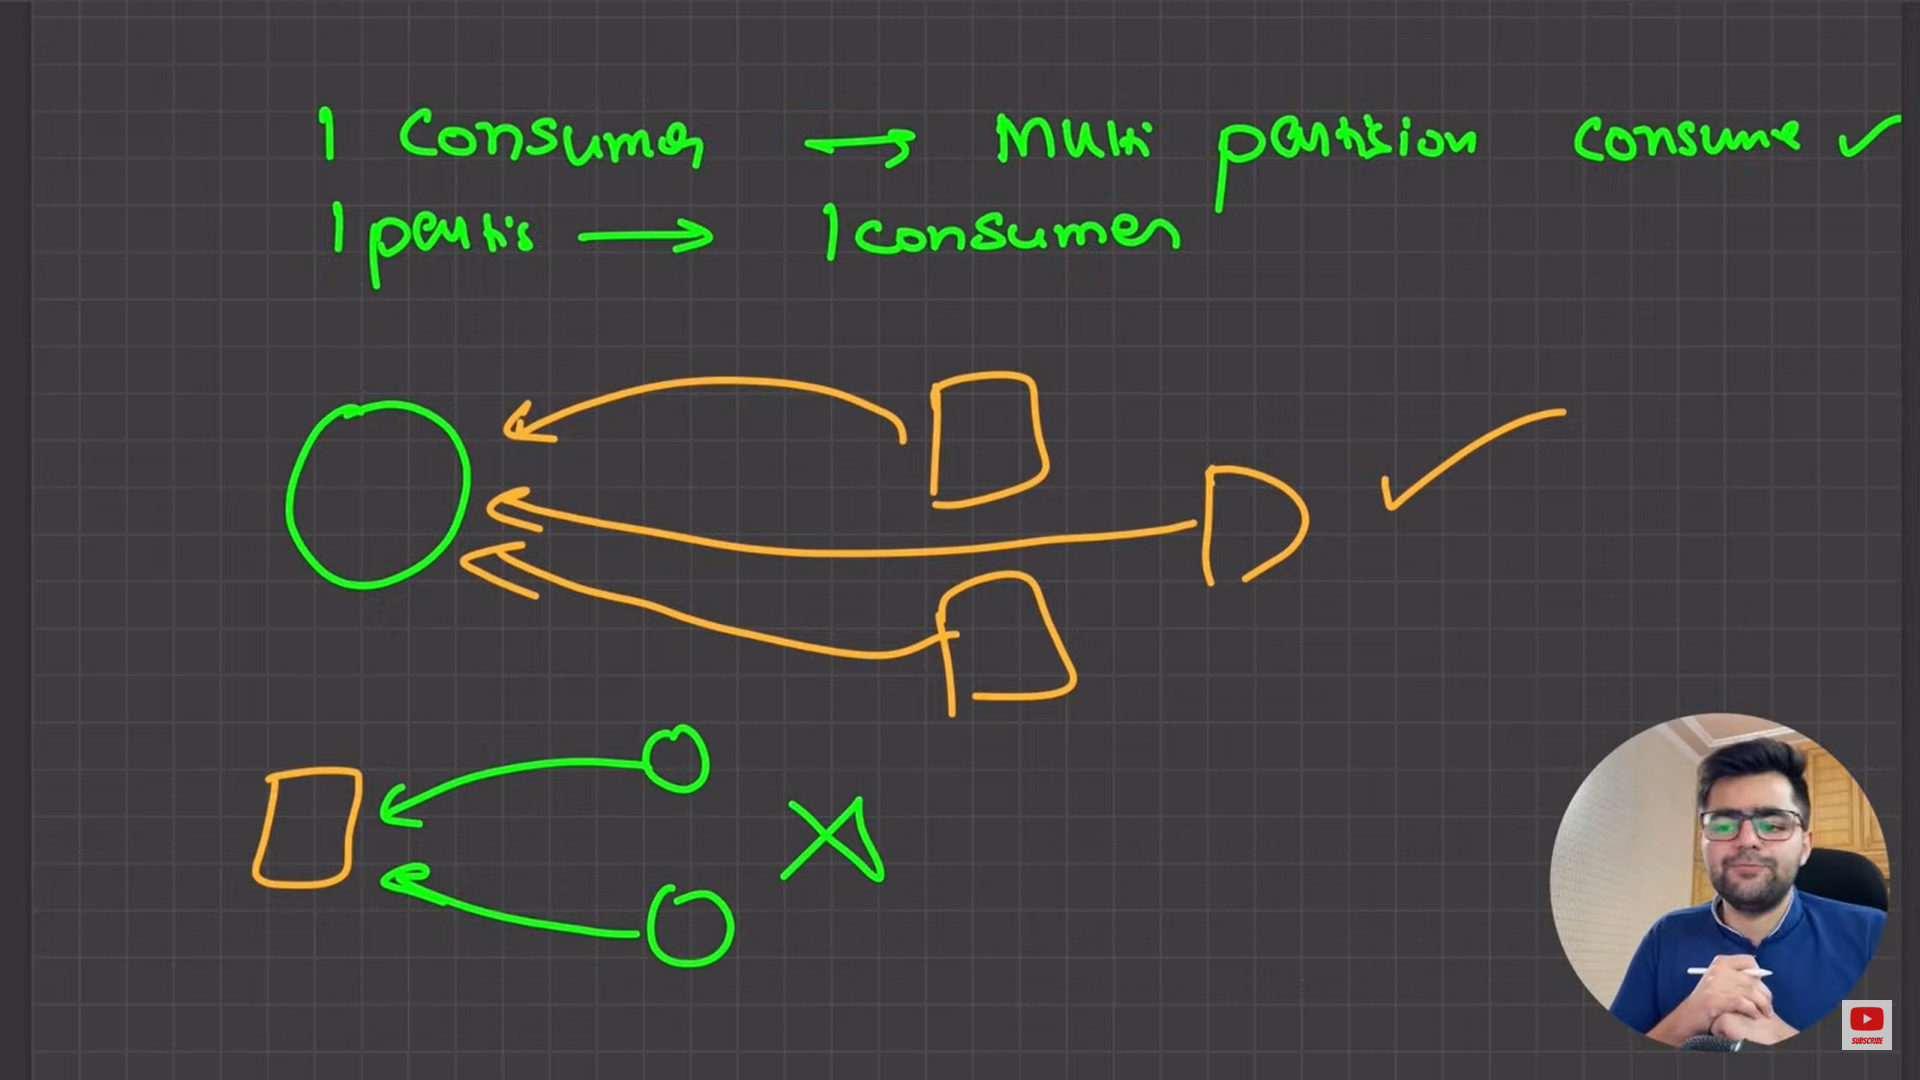 1 Consumer → Multi partision consume ✓
1 partis → 1 consumer
SUBSCRIBE